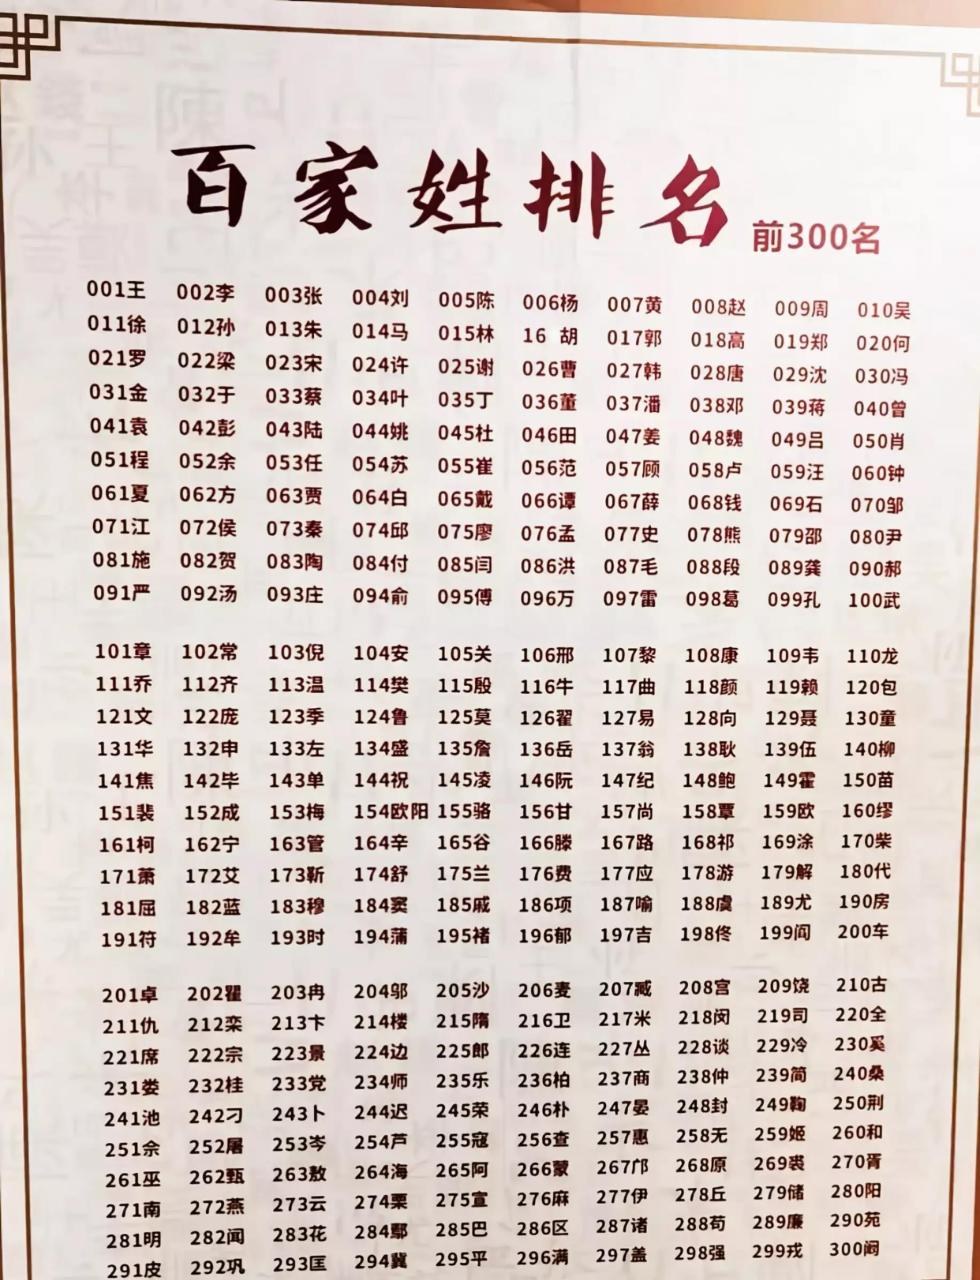 百家姓排名 前300名
001王 002李 003张 004刘 005陈 006杨 007黄 008赵 009周 010吴
011徐 012孙 013朱 014马 015林 16 胡 017郭 018高 019郑 020何
021罗 022梁 023宋 024许 025谢 026曹 027韩 028唐 029沈 030冯
031金 032于 033蔡 034叶 035丁 036董 037潘 038邓 039蒋 040曾
041袁 042彭 043陆 044姚 045杜 046田 047姜 048魏 049吕 050肖
051程 052余 053任 054苏 055崔 056范 057顾 058卢 059汪 060钟
061夏 062方 063贾 064白 065戴 066谭 067薛 068钱 069石 070邹
071江 072侯 073秦 074邱 075廖 076孟 077史 078熊 079邵 080尹
081施 082贺 083陶 084付 085闫 086洪 087毛 088段 089龚 090郝
091严 092汤 093庄 094俞 095傅 096万 097雷 098葛 099孔 100武
101章 102常 103倪 104安 105关 106邢 107黎 108康 109韦 110龙
111乔 112齐 113温 114樊 115殷 116牛 117曲 118颜 119赖 120包
121文 122庞 123季 124鲁 125莫 126翟 127易 128向 129聂 130童
131华 132申 133左 134盛 135詹 136岳 137翁 138耿 139伍 140柳
141焦 142毕 143单 144祝 145凌 146阮 147纪 148鲍 149霍 150苗
151裴 152成 153梅 154欧阳 155骆 156甘 157尚 158覃 159欧 160缪
161柯 162宁 163管 164辛 165谷 166滕 167路 168祁 169涂 170柴
171萧 172艾 173靳 174舒 175兰 176费 177应 178游 179解 180代
181屈 182蓝 183穆 184窦 185戚 186项 187喻 188虞 189尤 190房
191符 192牟 193时 194蒲 195褚 196郁 197吉 198佟 199阎 200车
201卓 202瞿 203冉 204邬 205沙 206麦 207臧 208宫 209饶 210古
211仇 212栾 213卞 214楼 215隋 216卫 217米 218闵 219司 220全
221席 222宗 223景 224边 225郎 226连 227丛 228谈 229冷 230奚
231娄 232桂 233党 234师 235乐 236柏 237商 238仲 239简 240桑
241池 242刁 243卜 244迟 245荣 246朴 247晏 248封 249鞠 250荆
251佘 252屠 253岑 254芦 255寇 256查 257惠 258无 259姬 260和
261巫 262甄 263敖 264海 265阿 266蒙 267邝 268原 269裘 270胥
271南 272燕 273云 274栗 275宣 276麻 277伊 278丘 279储 280阳
281明 282闻 283花 284鄢 285巴 286区 287诸 288苟 289廉 290苑
291皮 292巩 293匡 294冀 295平 296满 297盖 298强 299戎 300